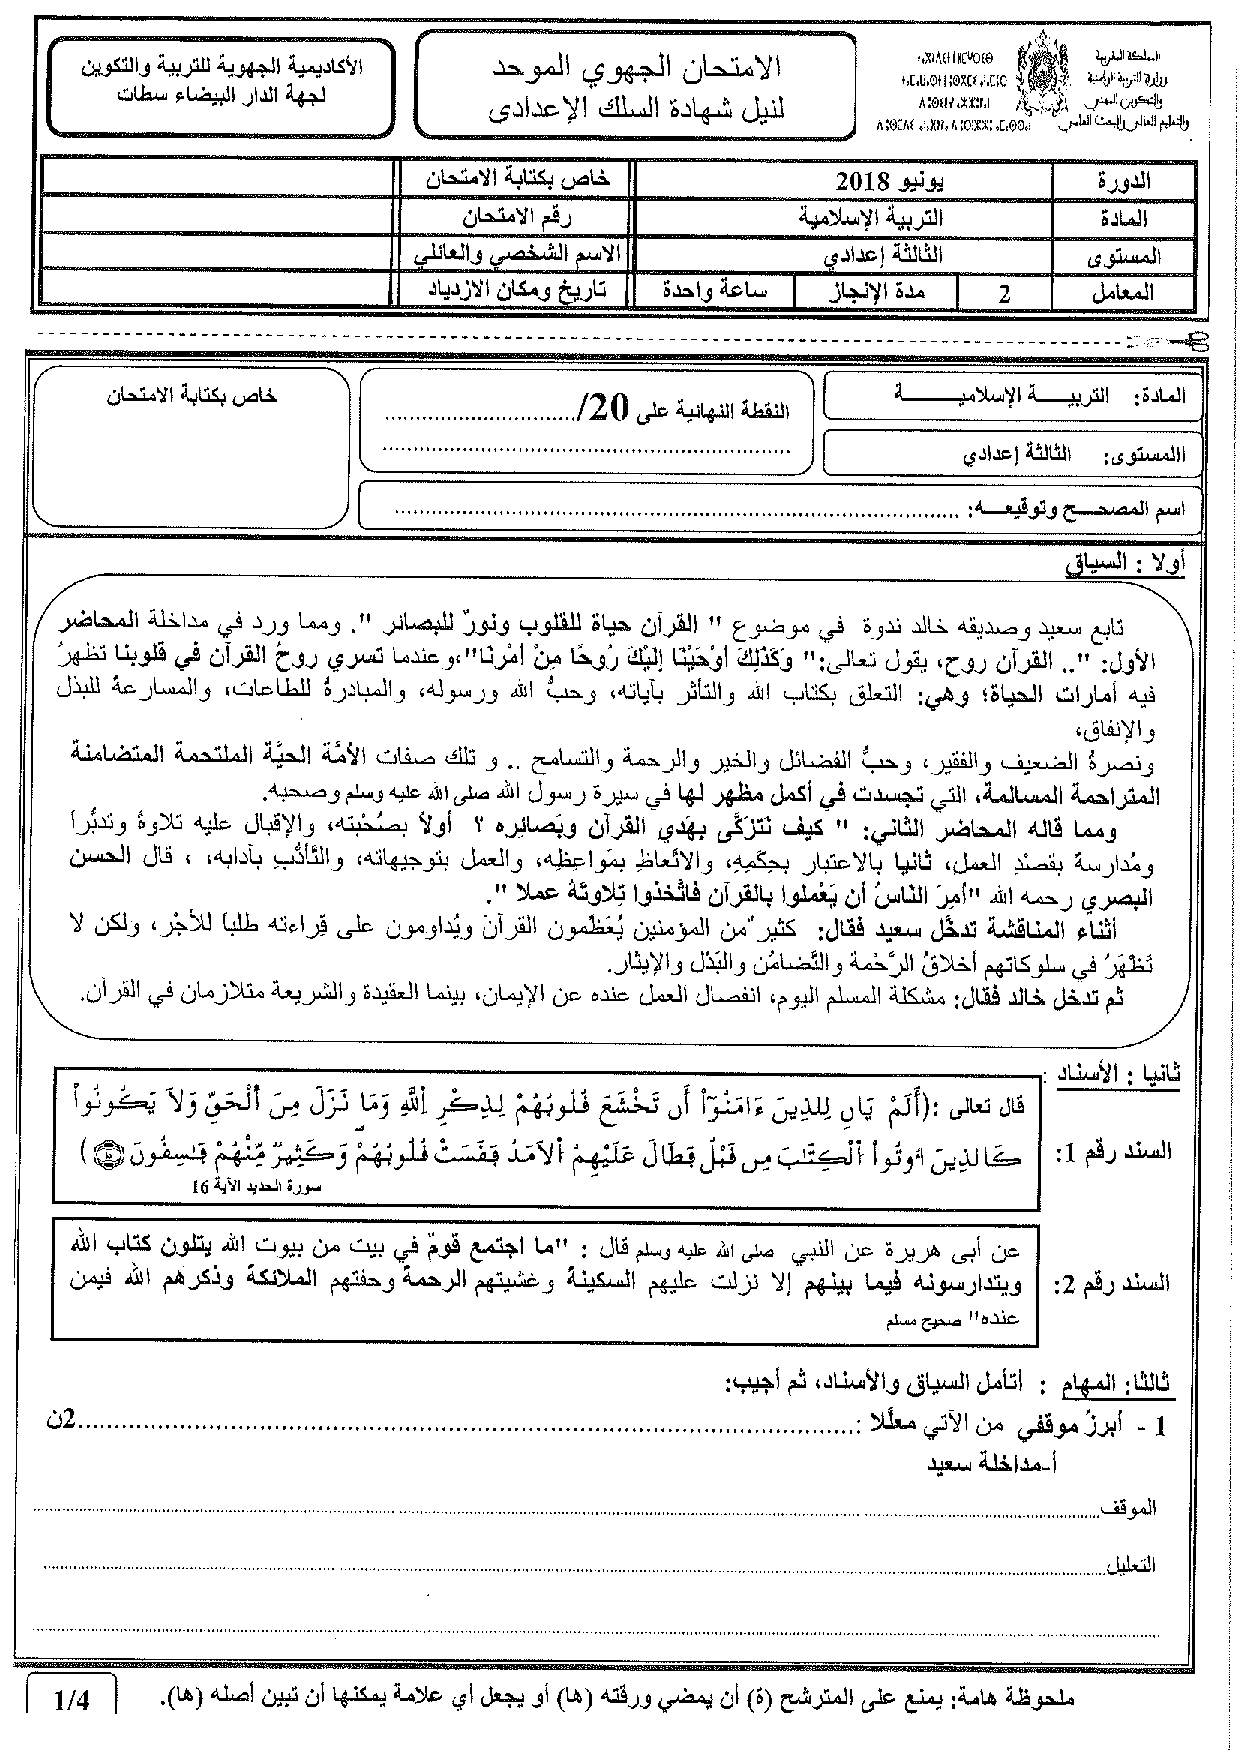 المملكة المغربية
وزارة التربية الوطنية
والتكوين المهني
والتعليم العالي والبحث العلمي
الامتحان الجهوي الموحد
لنيل شهادة السلك الإعدادي
الأكاديمية الجهوية للتربية والتكوين
لجهة الدار البيضاء سطات
الدورة يونيو 2018 خاص بكتابة الامتحان
المادة التربية الإسلامية رقم الامتحان
المستوى الثالثة إعدادي الاسم الشخصي والعائلي
المعامل 2 مدة الإنجاز ساعة واحدة تاريخ ومكان الازدياد
المادة: التربيـــة الإسلاميـــــة
المستوى: الثالثة إعدادي
النقطة النهائية على 20/
خاص بكتابة الامتحان
اسم المصحـــح وتوقيعـــه:
أولا : السياق
تابع سعيد وصديقه خالد ندوة في موضوع " القرآن حياة للقلوب ونورٌ للبصائر ". ومما ورد في مداخلة المحاضر
الأول: ".. القرآن روح، يقول تعالى:" وَكَذَلِكَ أَوْحَيْنَا إِلَيْكَ رُوحًا مِنْ أَمْرِنَا"،وعندما تسري روحُ القرآن في قلوبنا تظهرُ
فيه أمارات الحياة؛ وهي: التعلق بكتاب الله والتأثر بآياته، وحبُّ الله ورسوله، والمبادرةُ للطاعات، والمسارعةُ للبذل
والإنفاق،
ونصرةُ الضعيف والفقير، وحبُّ الفضائل والخير والرحمة والتسامح .. و تلك صفات الأمَّة الحيَّة الملتحمة المتضامنة
المتراحمة المسالمة، التي تجسدت في أكمل مظهر لها في سيرة رسول الله صلى الله عليه وسلم وصحبه.
ومما قاله المحاضر الثاني: " كيف نتزَكَّى بهَدي القرآن وبَصائره ؟ أولاً بصُحْبَته، والإقبال عليه تلاوةً وتدبُّراً
ومُدارسةً بقصْدِ العمل، ثانيا بالاعتبار بحِكَمِهِ، والاتّعاظِ بمَواعِظِه، والعمل بتوجيهاته، والتَّأدُّبِ بآدابه، ، قال الحسن
البصري رحمه الله "أمِرَ النّاسُ أن يَعْملوا بالقرآن فاتَّخذوا تِلاوتَهُ عملا ".
أثناء المناقشة تدخَّل سعيد فقال: كثير من المؤمنين يُعَظّمون القرآنَ ويُداومون على قِراءته طلبا للأجْر، ولكن لا
تَظْهَرُ في سلوكاتهم أخلاقُ الرَّحْمة والتَّضامُن والبَذْل والإيثار.
ثم تدخل خالد فقال: مشكلة المسلم اليوم، انفصال العمل عنده عن الإيمان، بينما العقيدة والشريعة متلازمان في القرآن.
ثانيا : الأسناد :
السند رقم 1:
قال تعالى :(أَلَمْ يَانِ لِلذِينَ ءَامَنُوٓاْ أَن تَخْشَعَ قُلُوبُهُمْ لِذِكْرِ اِللَّهِ وَمَا نَزَلَ مِنَ اَلْحَقِّ وَلَا يَكُونُواْ
كَالذِينَ أُوتُواْ اُلْكِتَٰبَ مِن قَبْلُ فَطَالَ عَلَيْهِمُ اُلَامَدُ فَقَسَتْ قُلُوبُهُمْ وَكَثِيرٌ مِّنْهُمْ فَٰسِقُونَ )
سورة الحديد الآية 16
السند رقم 2:
عن أبي هريرة عن النبي صلى الله عليه وسلم قال : "ما اجتمع قومٌ في بيت من بيوت الله يتلون كتاب الله
ويتدارسونه فيما بينهم إلا نزلت عليهم السكينةُ وغشيتهم الرحمةُ وحفتهم الملائكةُ وذكرهم الله فيمن
عنده" صحيح مسلم
ثالثا: المهام : أتأمل السياق والأسناد، ثم أجيب:
1 - أبرزُ موقفي من الآتي معلّلا :.......................2ن
أ-مداخلة سعيد
الموقف
التعليل
ملحوظة هامة: يمنع على المترشح (ة) أن يمضي ورقته (ها) أو يجعل أي علامة يمكنها أن تبين أصله (ها).
1/4